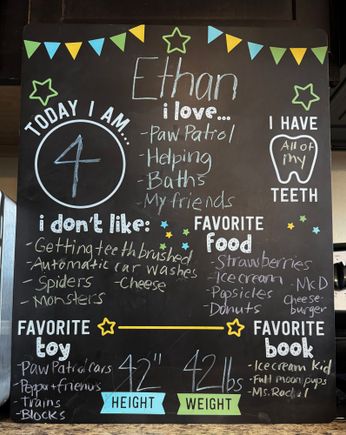 Ethan
TODAY I AM...
4
i love...
-Paw Patrol
-Helping
-Baths
-My friends
I HAVE
All of
my
TEETH
i don't like:
-Getting teeth brushed
-Automatic car washes
-Spiders -Cheese
-Monsters
FAVORITE
food
-Strawberries
-Ice cream
-Popsicles
-Donuts
-McD
Cheese-
burger
FAVORITE
toy
-Paw Patrol cars
-Peppa + friends
-Trains
-Blocks
42"
HEIGHT
42lbs
WEIGHT
FAVORITE
book
-Ice cream Kid
-Full moon pups
-Ms. Rachel